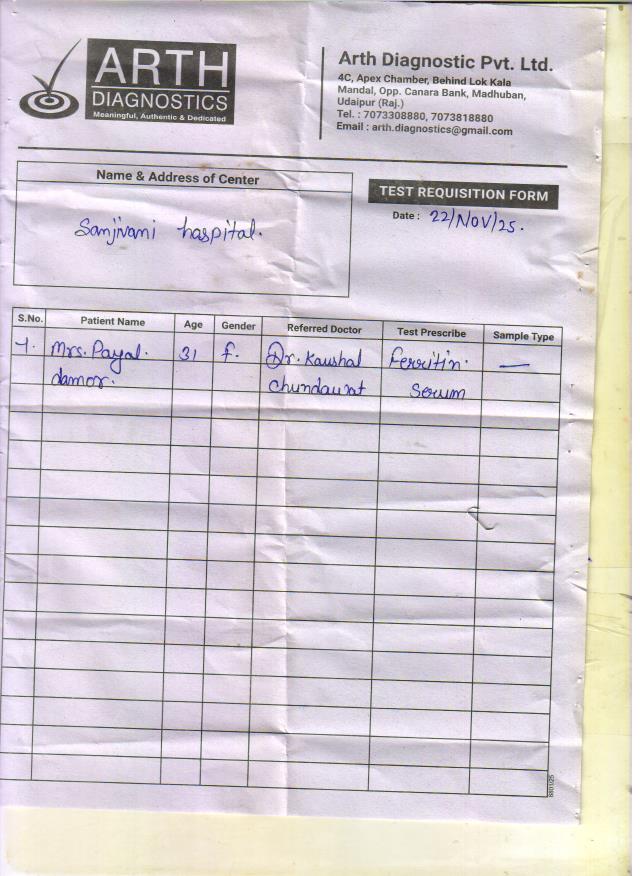 ARTH
DIAGNOSTICS
Meaningful, Authentic & Dedicated
Arth Diagnostic Pvt. Ltd.
4C, Apex Chamber, Behind Lok Kala
Mandal, Opp. Canara Bank, Madhuban,
Udaipur (Raj.)
Tel. : 7073308880, 7073818880
Email : arth.diagnostics@gmail.com
Name & Address of Center
Sanjivani haspital.
TEST REQUISITION FORM
Date : 22/NOV/25.
S.No. Patient Name Age Gender Referred Doctor Test Prescribe Sample Type
1. Mrs. Payal. 31 f. Dr. Kaushal Ferritin. —
damor. Chundawat Serum